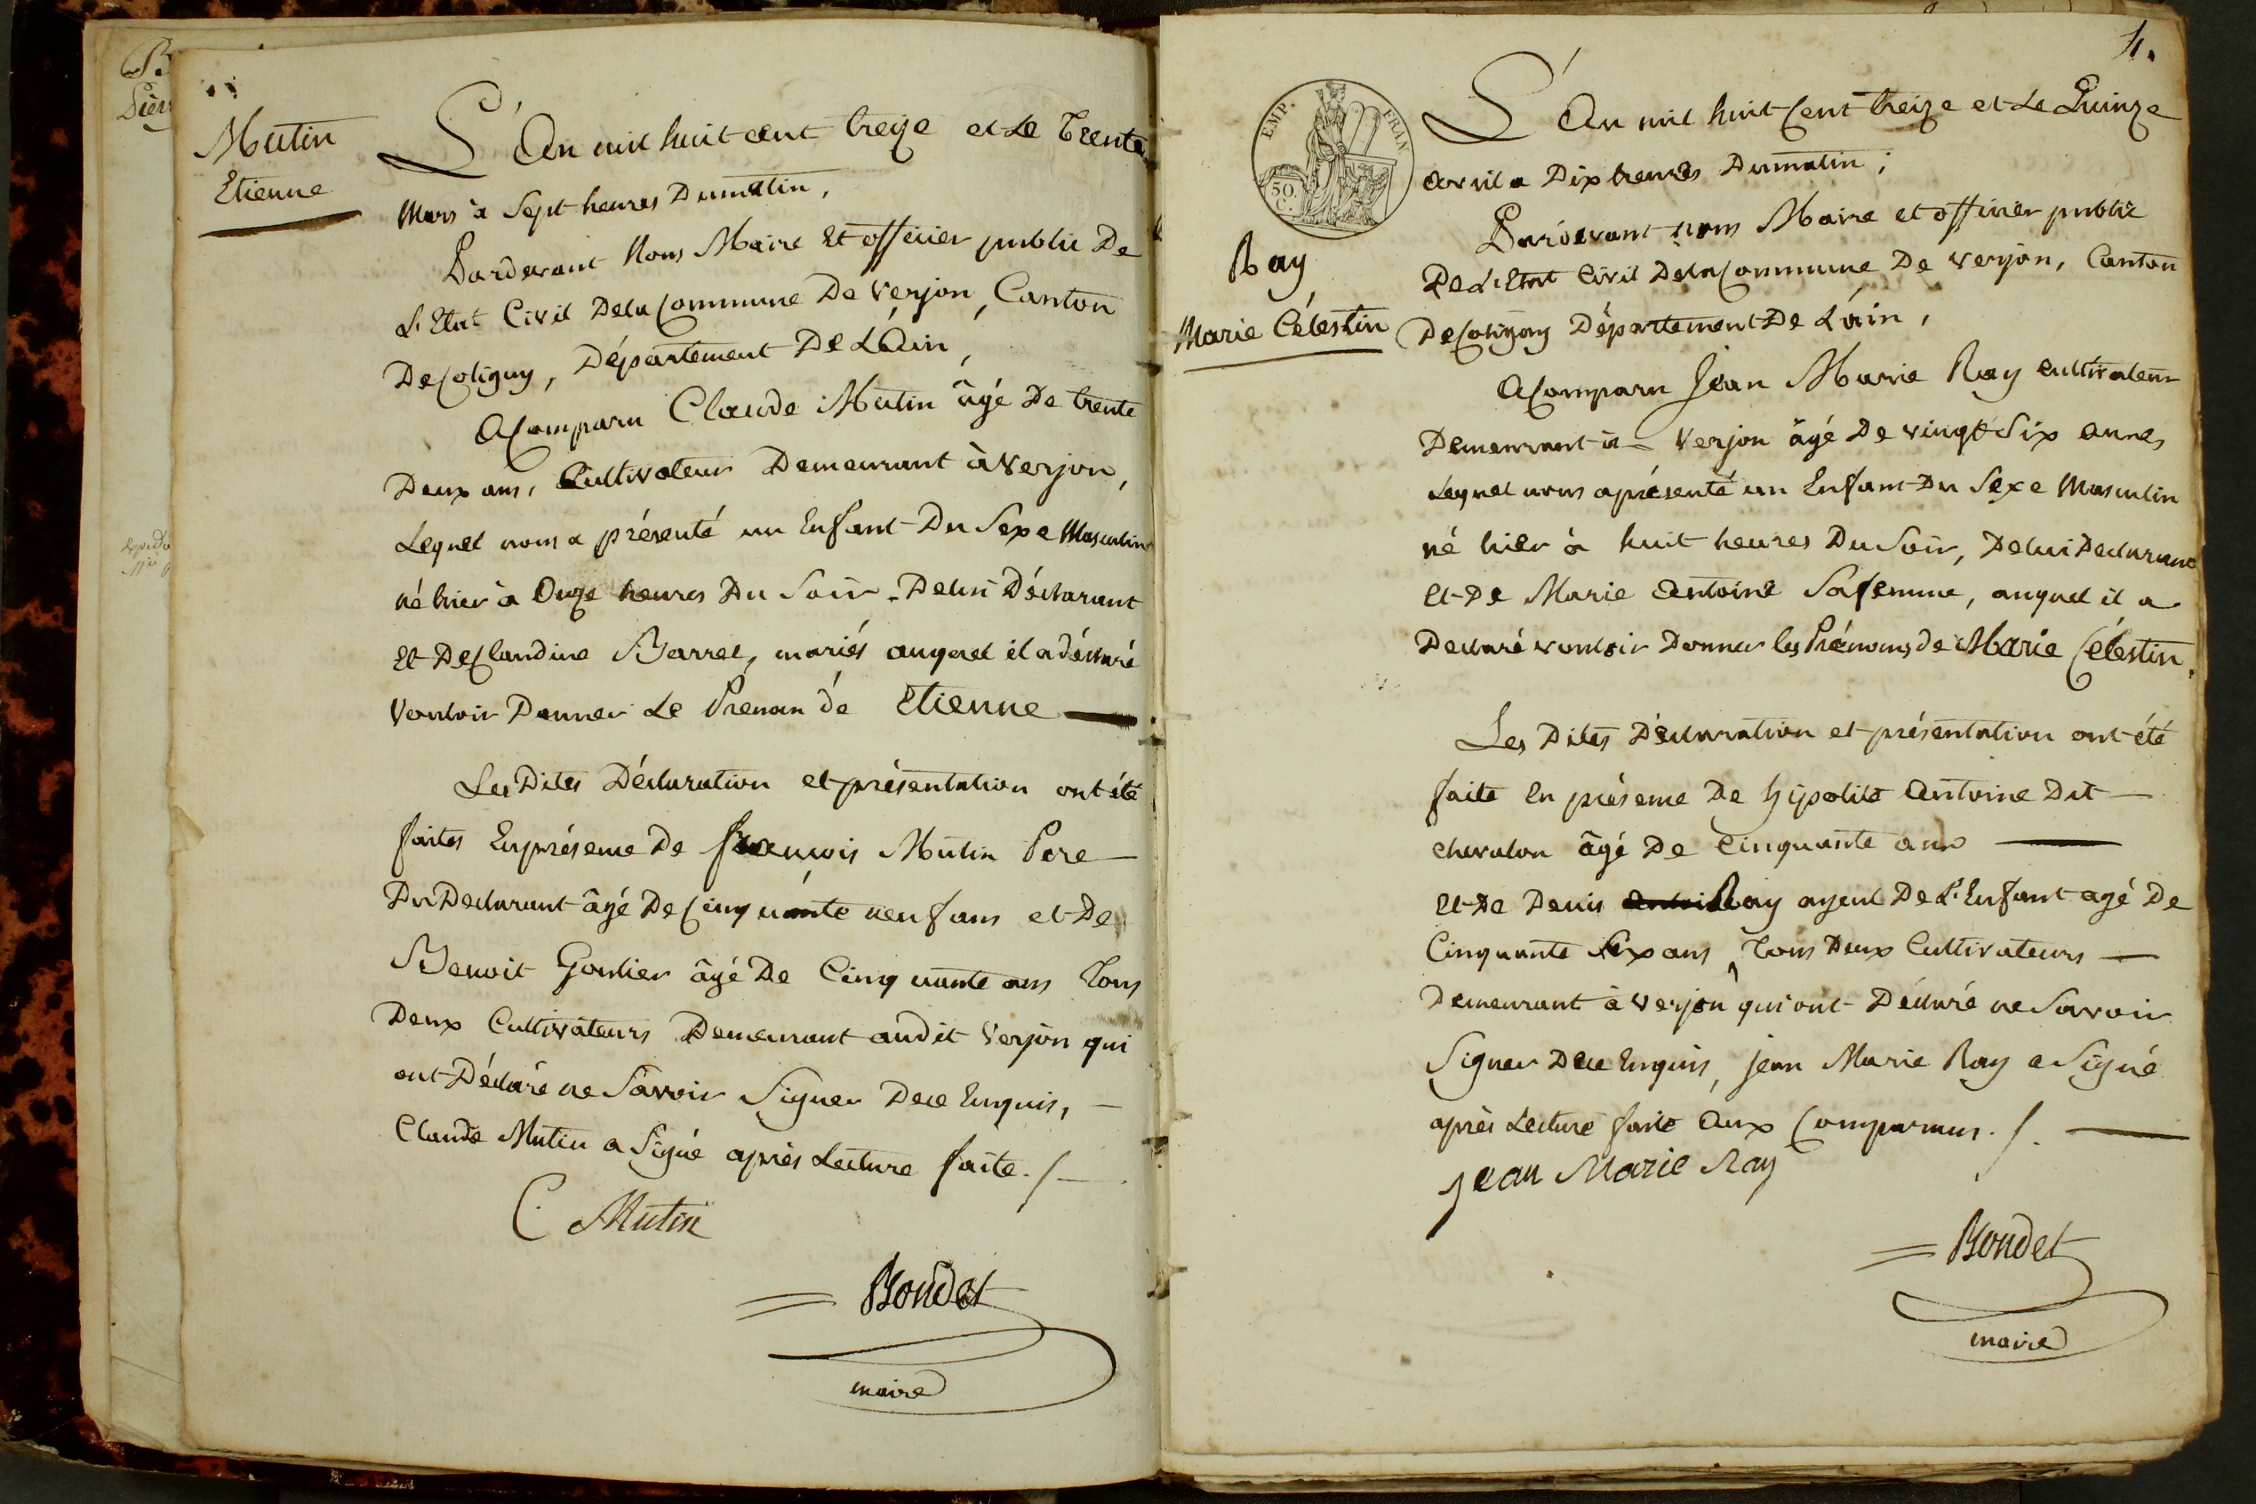 Mutin
Etienne
L'An mil huit cent treize et Le Trente
Mars à Sept heures Dumatin,
Pardevant Nous Maire Et officier public De
L'Etat Civil Dela Commune De Verjon, Canton
De Coligny, Département De L'Ain,
A Comparu Claude Mutin âgé De trente
Deux ans, Cultivateur Demeurant à Verjon,
Lequel nous a présenté un Enfant Du Sexe Masculin
né hier à Onze heures Du Soir, Delui Déclarant
Et De Claudine Barret, mariés auquel il a déclaré
Vouloir Donner Le Prenom dé Etienne
Les Dites Déclaration et présentation ont été
faites En présence De francois Mutin Pere
Du Declarant âgé De Cinquante neuf ans et De
Benoit Goutier âgé De Cinquante ans Tous
Deux Cultivateurs Demeurant audit Verjon qui
ont Déclaré ne Savoir Signer Dece Enquis,
Claude Mutin a Signé après Lecture faite ./.
C. Mutin
Bondet
maire
4.
EMP. FRAN
50. C.
Ray
Marie Célestin
L'An mil huit Cent treize et Le Quinze
avril a Dix heures Dumatin;
Pardevant nous Maire et officier public
De L'Etat Civil Dela Commune De Verjon, Canton
De Coligny Département De L'ain,
A Comparu Jean Marie Ray cultivateur
Demeurant à Verjon âgé De vingt Six annes
Lequel nous a présenté un Enfant Du Sexe Masculin
né hier à huit heures Du Soir, Delui Declarant
et De Marie Antoine Sa femme, auquel il a
Declaré vouloir Donner les Prénoms de Marie Célestin.
Les Dites Déclaration et présentation ont été
faite En présence De hipolite Antoine Dit
chevalon âgé De Cinquante ans
et De Denis Ray ayeul De L'Enfant agé De
Cinquante Six ans Tous Deux Cultivateurs
Demeurant à Verjon qui ont Déclaré ne Savoir
Signer Dece Enquis, jean Marie Ray a Signé
après Lecture faite aux Comparans ./.
jean Marie Ray
Bondet
maire